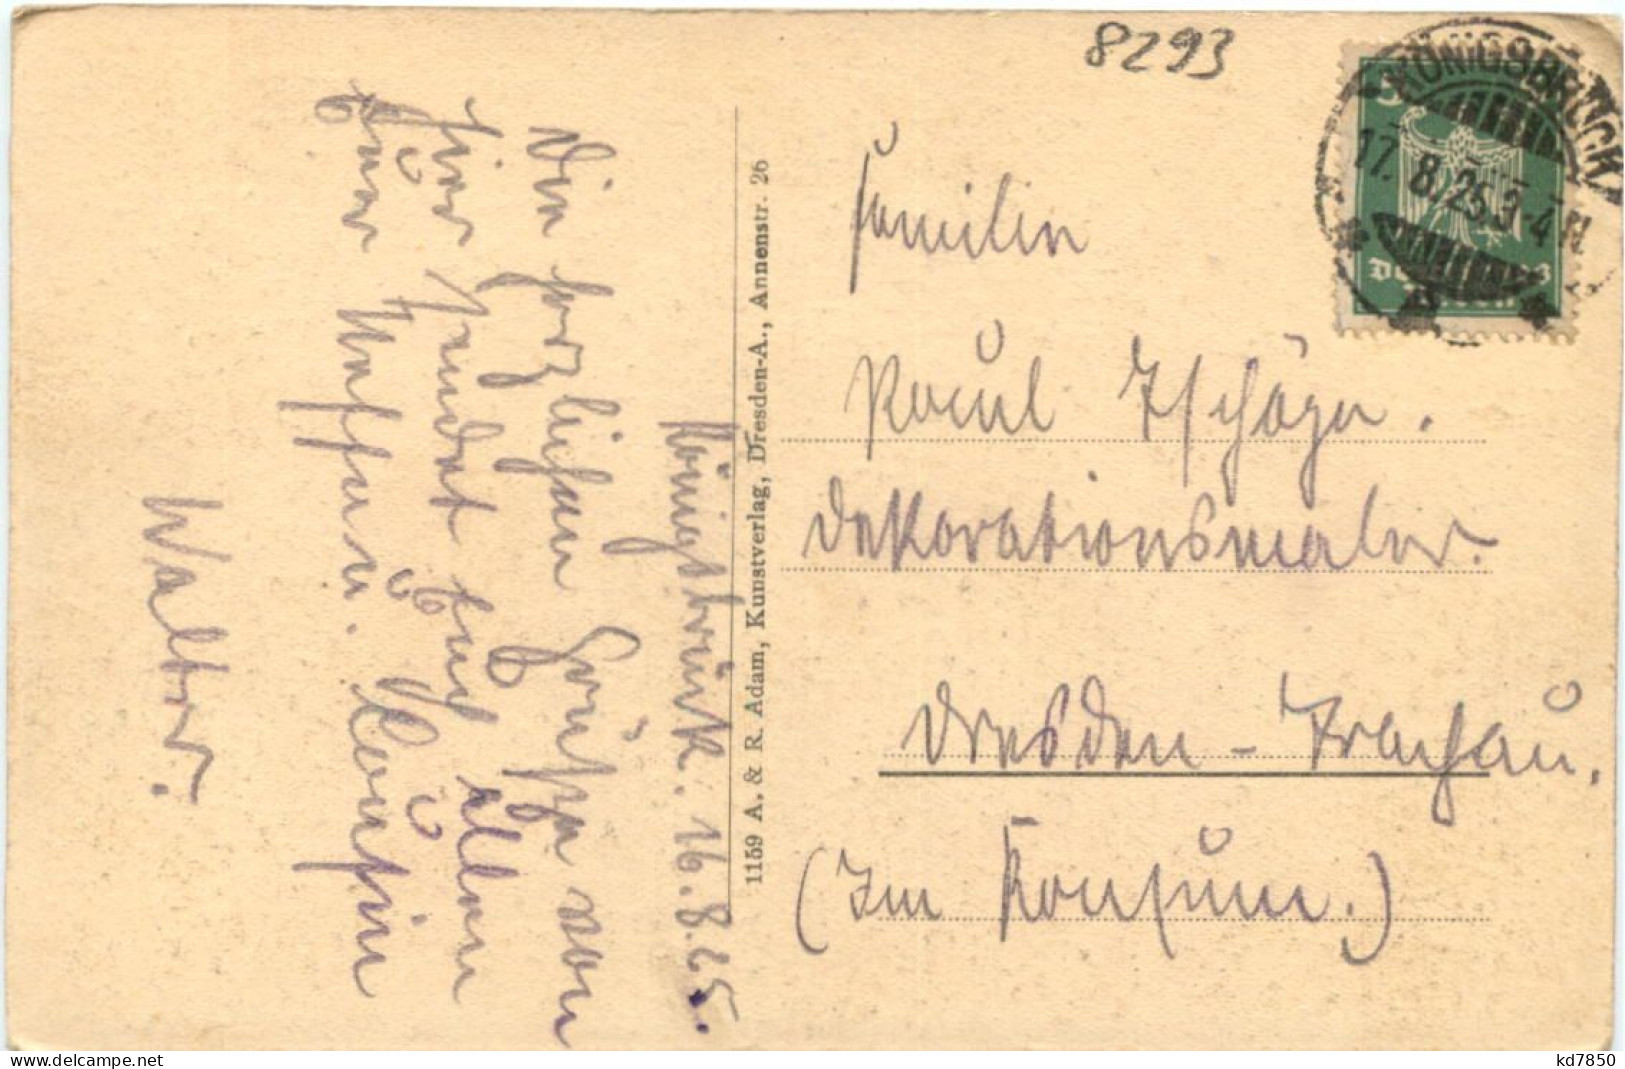 8293
KÖNIGSBRÜCK
17. 8. 25. 3-4 N
5
Königsbrück. 16. 8. 25.
Die herzlichen Grüße von
hier sendet Euch allen
Euer Neffe u. Cousin
Walter.
1159 A. & R. Adam, Kunstverlag, Dresden-A., Annenstr. 26
Familie
Paul Zschäge.
Dekorationsmaler.
Dresden - Trachau.
(Im Konsum.)
kd7850